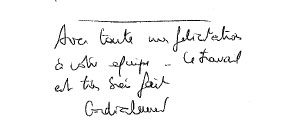 Avec toute mes félicitations
à votre équipe - Le travail
est très bien fait
Cordialement